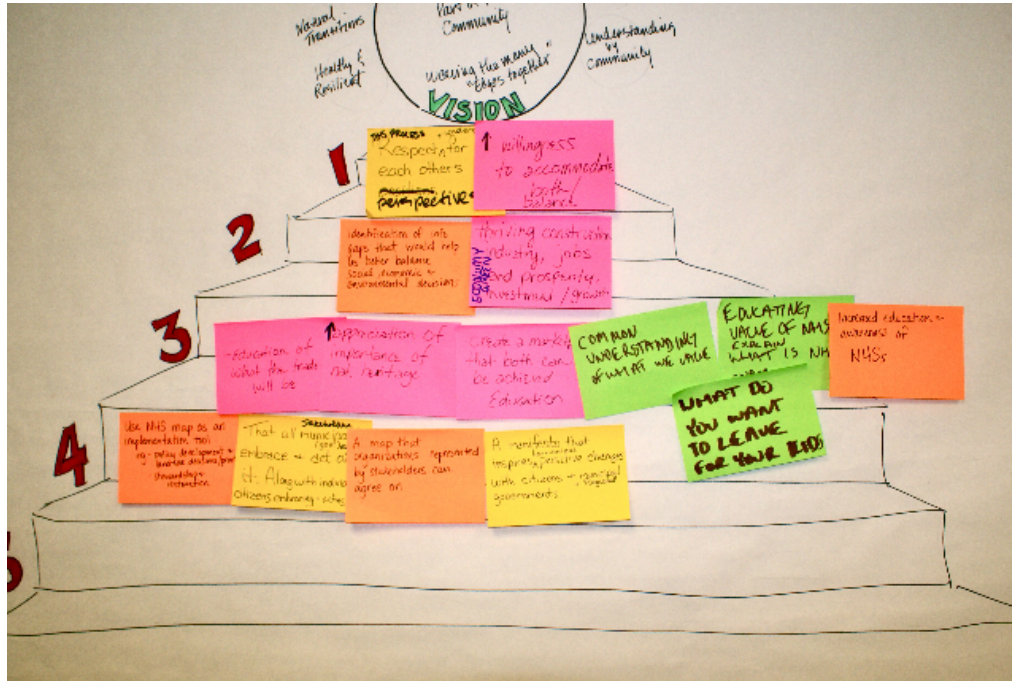 Natural
Transitions
Healthy &
Resilient
Part
Community
Weaving the many
edges together"
Understanding
by
Community
VISION
1
THIS PROCESS
Respect for
each others
perspective
↑ willingness
to accommodate
both/
balance
2
Identification of info
gaps that would help
us better balance
social, economic +
environmental decisions
thriving construction
industry, jobs
and prosperity,
investment / growth
ECONOMY
GREEN
3
- Education of
what the trade
will be
↑ appreciation of
importance of
nat. heritage
Create a market
that both can
be achieved
Education
COMMON
UNDERSTANDING
OF WHAT WE VALUE
EDUCATING
VALUE OF NHS
EXPLAIN
WHAT IS NH
Increased education +
awareness of
NHSs
WHAT DO
YOU WANT
TO LEAVE
FOR YOUR KIDS
4
Use NHS map as an
implementation tool
eg - policy development +
stewardship +
restoration
Stakeholders
That all
embrace +
it. Along with
citizens embracing
A map that
organizations represented
by stakeholders can
agree on
A manifesto that
inspires positive changes
with citizens + municipal
governments
5